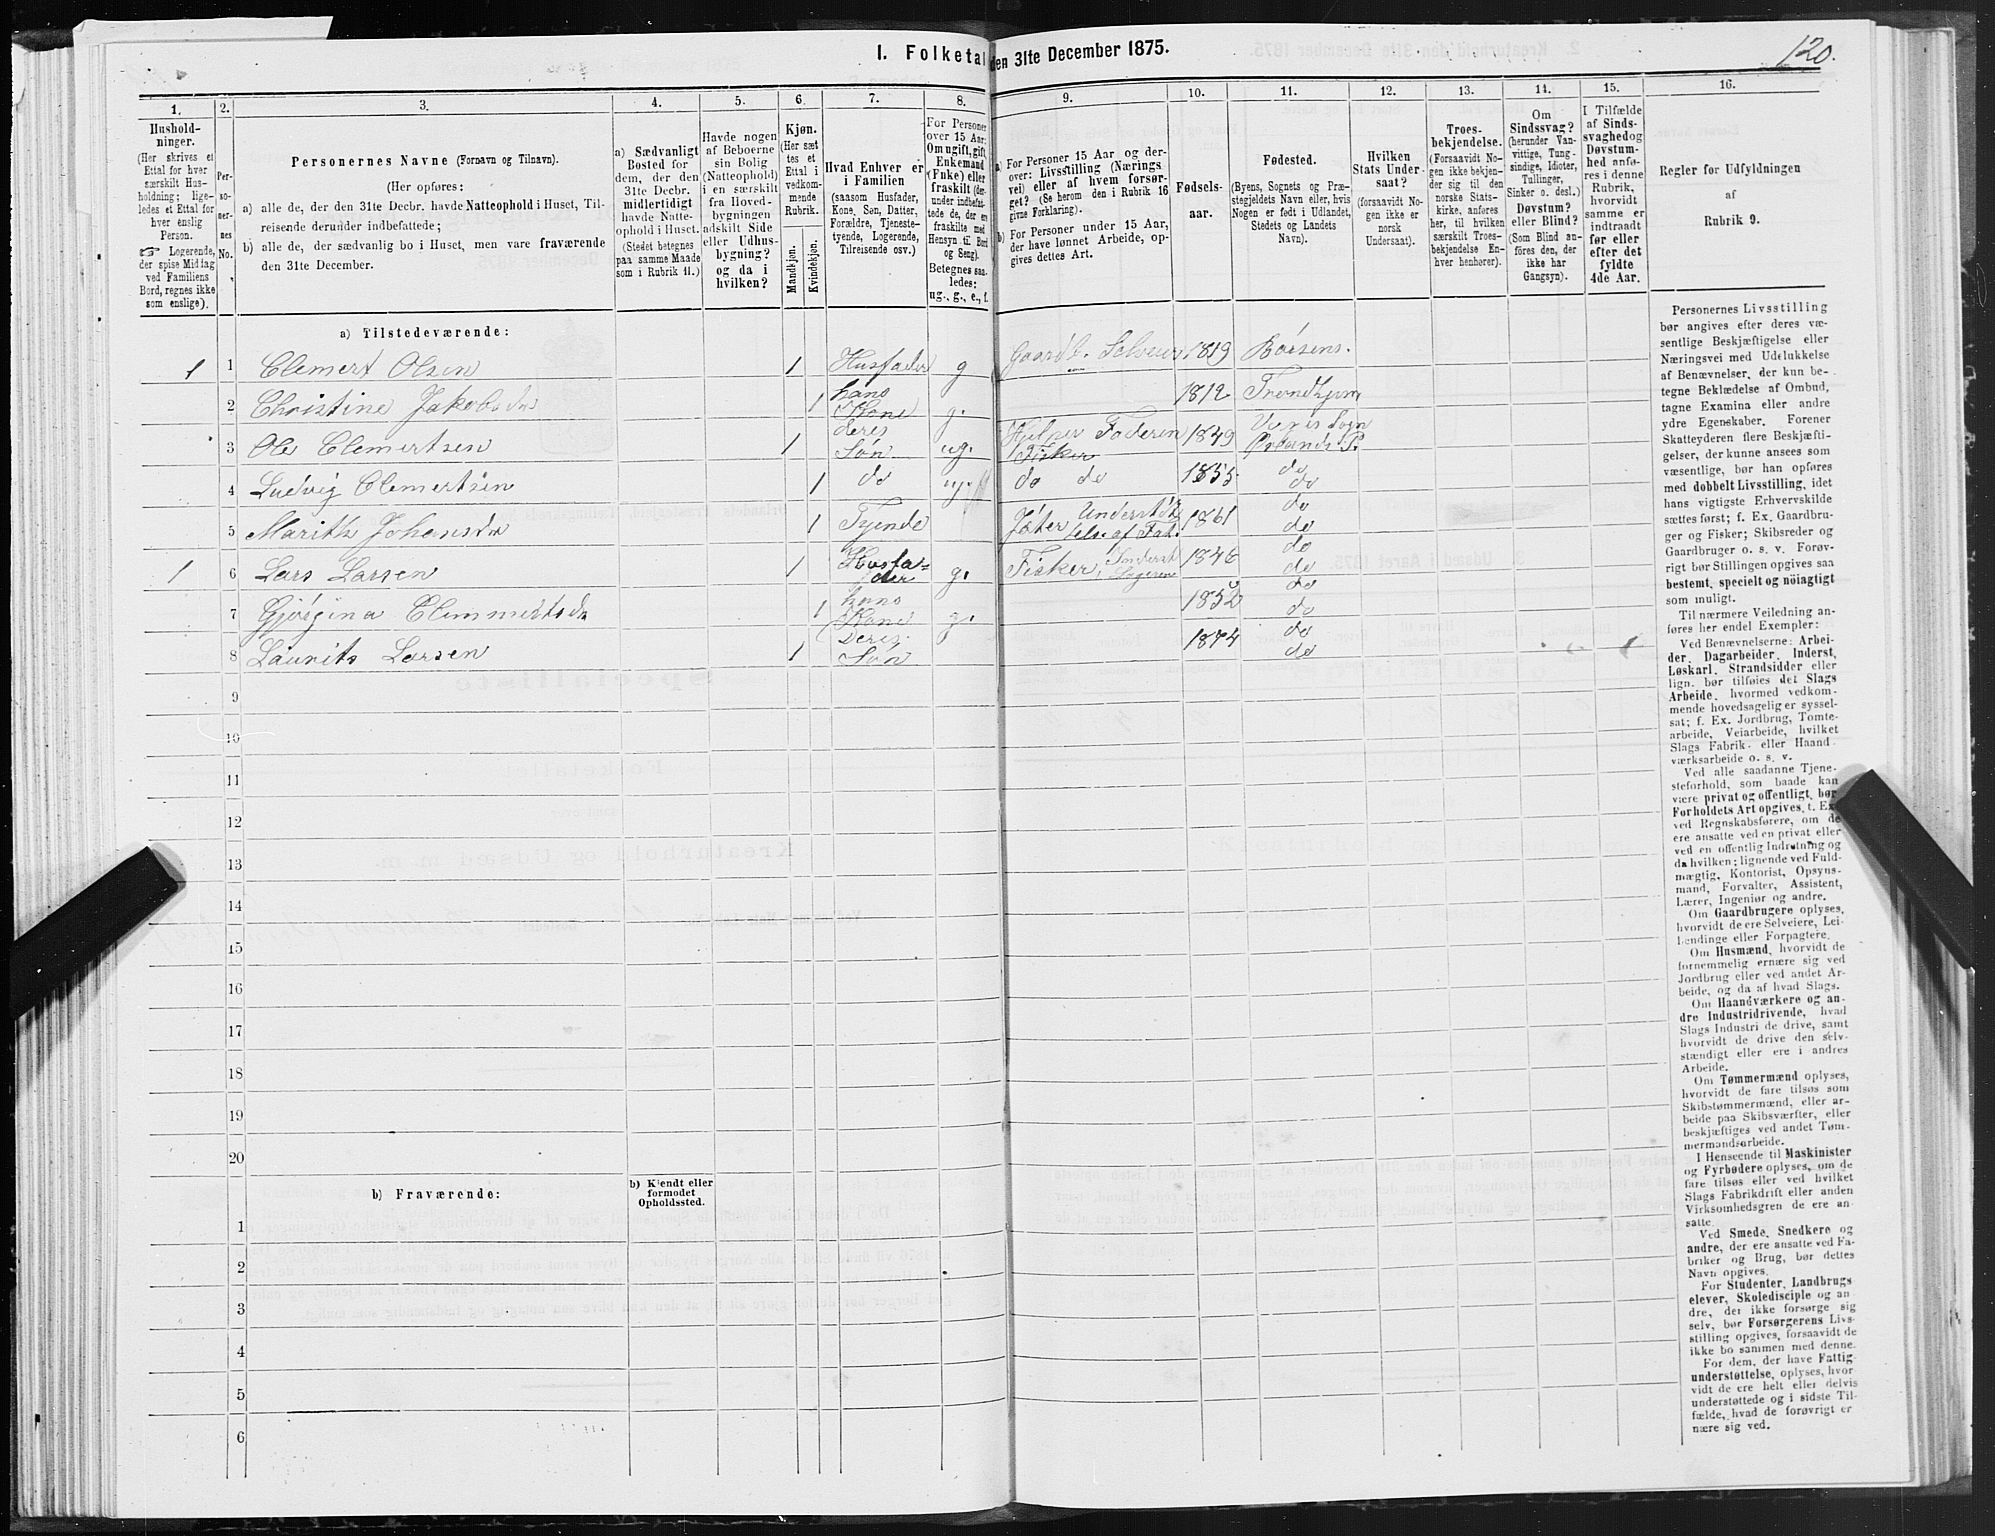 I. Folketal den 31te December 1875.
120.
1. 2. 3. 4. 5. 6. 7. 8. 9. 10. 11. 12. 13. 14. 15. 16.
Hushold-
ninger.
(Her skrives et
Ettal for hver
særskilt Hus-
holdning; lige-
ledes et Ettal for
hver enslig
Person.
☞ Logerende,
der spise Middag
ved Familiens
Bord, regnes ikke
som enslige).
Per-
so-
ner-
nes
No.
Personernes Navne (Fornavn og Tilnavn).
(Her opføres:
a) alle de, der den 31te Decbr. havde Natteophold i Huset, Til-
reisende derunder indbefattede;
b) alle de, der sædvanlig bo i Huset, men vare fraværende
den 31te December.
a) Sædvanligt
Bosted for
dem, der den
31te Decbr.
midlertidigt
havde Natte-
ophold i Huset.
(Stedet betegnes
paa samme Maade
som i Rubrik 11.)
Havde nogen
af Beboerne
sin Bolig
(Natteophold)
i en særskilt
fra Hoved-
bygningen
adskilt Side
eller Udhus-
bygning?
og da i
hvilken?
Kjøn.
(Her sæt
tes et
Ettal i
vedkom-
mende
Rubrik.
Mandkjøn.
Kvindekjøn.
Hvad Enhver er
i Familien
(saasom Husfader,
Kone, Søn, Datter,
Forældre, Tjeneste-
tyende, Logerende,
Tilreisende osv.)
For Personer
over 15 Aar:
Om ugift, gift,
Enkemand
(Enke) eller
fraskilt (der-
under indbefat-
tede de, der ere
fraskilte med
Hensyn til Bord
og Seng).
Betegnes saa-
ledes:
ug., g., e., f.
a) For Personer 15 Aar og der-
over: Livsstilling (Nærings-
vei) eller af hvem forsør-
get? (Se herom den i Rubrik 16
givne Forklaring).
b) For Personer under 15 Aar,
der have lønnet Arbeide, op-
gives dettes Art.
Fødsels-
aar.
Fødested.
(Byens, Sognets og Præ-
stegjeldets Navn eller, hvis
Nogen er født i Udlandet,
Stedets og Landets
Navn).
Hvilken
Stats Under-
saat?
(forsaavidt No-
gen ikke er
norsk
Undersaat).
Troes-
bekjendelse.
(Forsaavidt No-
gen ikke bekjen-
der sig til den
norske Stats-
kirke, anføres
her, til hvilken
særskilt Troes-
bekjendelse En-
hver henhører).
Om
Sindssvag?
(herunder Van-
vittige, Tung-
sindige, Idioter,
Tullinger,
Sinker o. desl.)
Døvstum?
eller Blind?
(Som Blind an-
føres den, der
ikke har
Gangsyn).
I Tilfælde
af Sinds-
svaghed og
Døvstum-
hed anfø-
res i denne
Rubrik,
hvorvidt
samme er
indtraadt
før eller
efter det
fyldte
4de Aar.
Regler for Udfyldningen
af
Rubrik 9.
a) Tilstedeværende:
1 1 Clemert Olsen 1 Husfader g Gaardb. Selveier 1819 Børsens.
2 Christine Jakobsdr 1 hans Kone g. 1812 Trondhjem
3 Ole Clemertsen 1 deres Søn ug. Hjelper Faderen Fisker 1849 Ørlands P.
4 Ludvig Clemertsen 1 do ug. do do 1855 do do
5 Marith Johansdr 1 Tjende Understøt af Fat. 1861 do do
1 6 Lars Larsen 1 Husfader g. Fisker, 1846 do do
7 Gjørgina Clemmertsdr 1 hans Kone g. 1852 do do
8 Laurits Larsen 1 Deres Søn 1874 do do
9
10
11
12
13
14
15
16
17
18
19
20
b) Fraværende:
b) Kjendt eller
formodet
Opholdssted.
1
2
3
4
5
6
Personernes Livsstilling
bør angives efter deres væ-
sentlige Beskjæftigelse eller
Næringsvei med Udelukkelse
af Benævnelser, der kun be-
tegne Beklædelse af Ombud,
tagne Examina eller andre
ydre Egenskaber. Forener
Skatteyderen flere Beskjæfti-
gelser, der kunne ansees som
væsentlige, bør han opføres
med dobbelt Livsstilling, idet
hans vigtigste Erhvervskilde
sættes først; f. Ex. Gaardbru-
ger og Fisker; Skibsreder og
Gaardbruger o. s. v. Forøv-
rigt bør Stillingen opgives saa
bestemt, specielt og nøiagtigt
som muligt.
Til nærmere Veiledning an-
føres her endel Exempler:
Ved Benævnelserne: Arbei-
der, Dagarbeider, Inderst,
Løskarl, Strandsidder eller
lign. bør tilføies det Slags
Arbeide, hvormed vedkom-
mende hovedsagelig er syssel-
sat; f. Ex. Jordbrug, Tomte-
arbeide, Veiarbeide, hvilket
Slags Fabrik- eller Haand-
værksarbeide o. s. v.
Ved alle saadanne Tjene-
steforhold, som baade kan
være privat og offentligt, bør
Forholdets Art opgives, t. Ex.
ved Regnskabsførere, om de
ere ansatte ved en privat eller
ved en offentlig Indretning og
da hvilken; lignende ved Fuld-
mægtig, Kontorist, Opsyns-
mand, Forvalter, Assistent,
Lærer, Ingeniør og andre.
Om Gaardbrugere oplyses,
hvorvidt de ere Selveiere, Lei-
lændinge eller Forpagtere.
Om Husmænd, hvorvidt de
fornemmelig ernære sig ved
Jordbrug eller ved andet Ar-
beide, og da af hvad Slags.
Om Haandværkere og an-
dre Industridrivende, hvad
Slags Industri de drive, samt
hvorvidt de drive den selv-
stændigt eller ere i andres
Arbeide.
Om Tømmermænd oplyses,
hvorvidt de fare tilsøs som
Skibstømmermænd, eller ar-
beide paa Skibsværfter, eller
beskjæftiges ved andet Tøm-
mermandsarbeide.
I Henseende til Maskinister
og Fyrbødere oplyses, om de
fare tilsøs eller ved hvilket
Slags Fabrikdrift eller anden
Virksomhedsgren de ere an-
satte.
Ved Smede, Snedkere og
andre, der ere ansatte ved Fa-
briker og Brug, bør dettes
Navn opgives.
For Studenter, Landbrugs-
elever, Skoledisciple og an-
dre, der ikke forsørge sig
selv, bør Forsørgerens Livs-
stilling opgives, forsaavidt de
ikke bo sammen med denne.
For dem, der have Fattig-
understøttelse, oplyses, hvor-
vidt de ere helt eller delvis
understøttede og i sidste Til-
fælde, hvad de forøvrigt er-
nære sig ved.